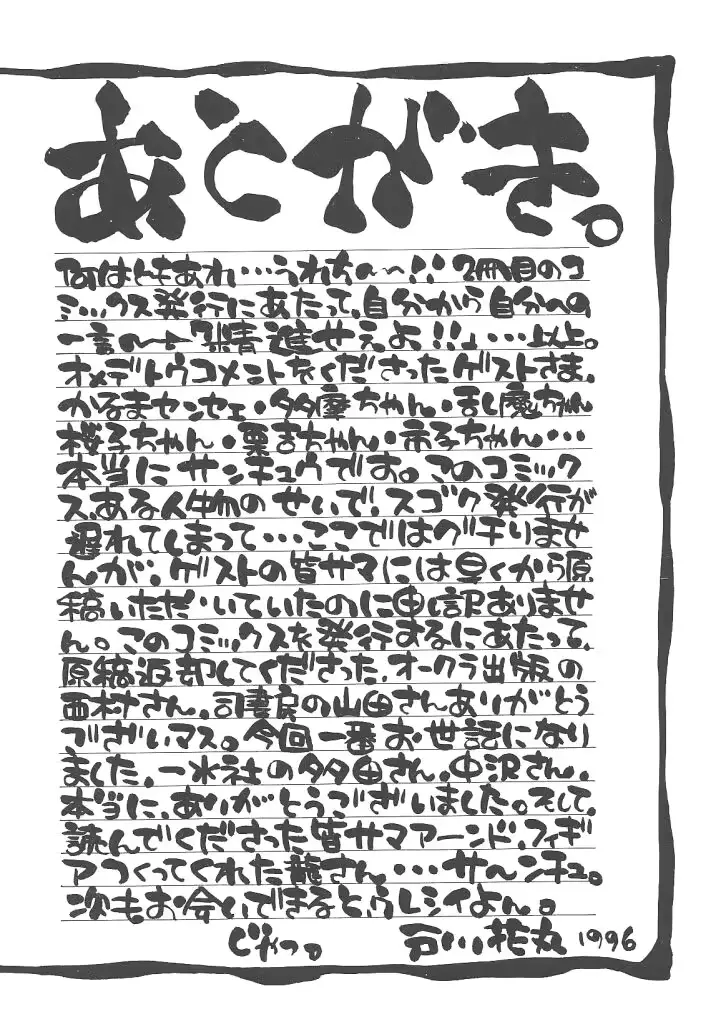 あとがき。
何はともあれ…うれちぃ〜!! 2冊目のコ
ミックス発行にあたって、自分から自分への
一言の→「精進せぇよ!!」…以上。
オメデトウコメントをくださったゲストさま。
かるまセンセェ・多摩ちゃん・乱魔ちゃん
桜子ちゃん・栗吉ちゃん・市子ちゃん…
本当にサンキュウです。このコミック
ス、ある人物のせいで、スゴク発行が
遅れてしまって…ここではグチりませ
んが、ゲストの皆サマには早くから原
稿いただいていたのに申し訳ありませ
ん。このコミックスを発行するにあたって、
原稿返却してくださった、オークラ出版の
西村さん。司書房の山田さんありがとう
ございマス。今回一番お世話になり
ました、一水社の多田さん。中沢さん。
本当に、ありがとうございました。そして、
読んでくださった皆サマアーンド、フィギ
アつくってくれた龍さん…サーンチュ。
次もお会いできるとうレシイよん。
じゃっ。 石川花丸 1996